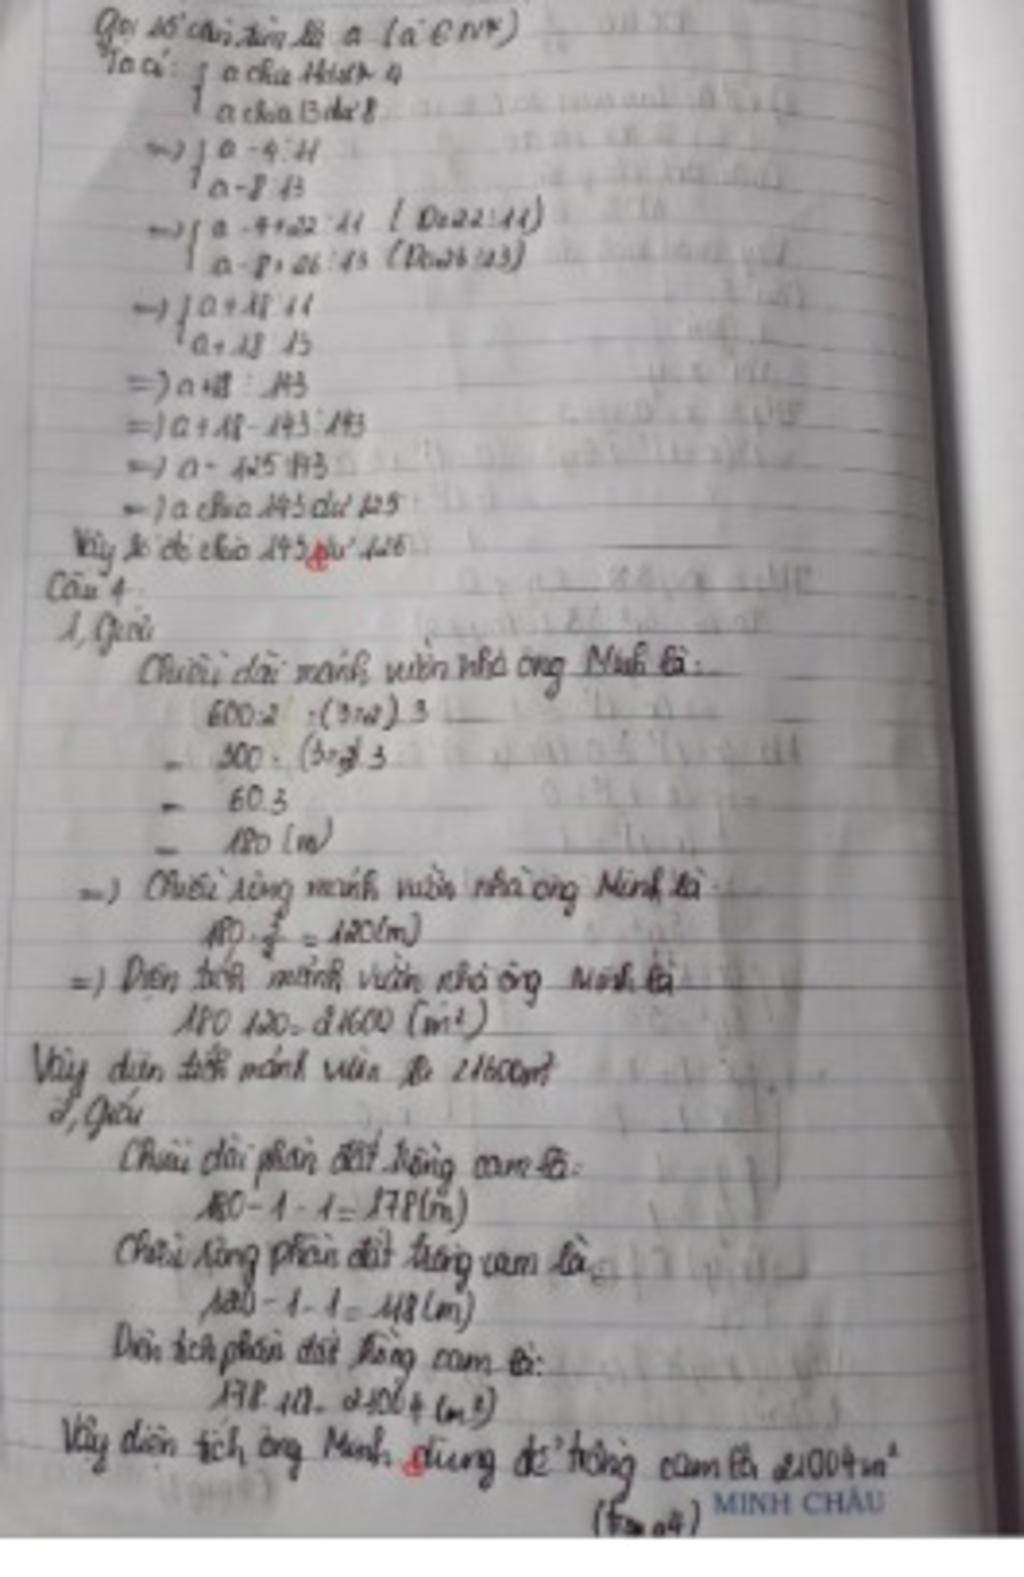 Gọi số cần tìm là a (a ∈ N*)
Ta có: { a chia 11 dư 4
a chia 13 dư 8
=> { a - 4 ⋮ 11
a - 8 ⋮ 13
=> { a - 4 + 22 ⋮ 11 (Do 22 ⋮ 11)
a - 8 + 26 ⋮ 13 (Do 26 ⋮ 13)
=> { a + 18 ⋮ 11
a + 18 ⋮ 13
=> a + 18 ⋮ 143
=> a + 18 - 143 ⋮ 143
=> a - 125 ⋮ 143
=> a chia 143 dư 125
Vậy số đó chia 143 dư 125
Câu 4:
1, Giải
Chiều dài mảnh vườn nhà ông Minh là:
600:2 :(3+2).3
= 300 : (3+2).3
= 60.3
= 180 (m)
=> Chiều rộng mảnh vườn nhà ông Minh là:
180 . = 120(m)
=> Diện tích mảnh vườn nhà ông Minh là
180.120= 21600 (m²)
Vậy diện tích mảnh vườn là 21600m²
2, Giải
Chiều dài phần đất trồng cam là:
180 - 1 - 1 = 178(m)
Chiều rộng phần đất trồng cam là:
120 - 1 - 1 = 118(m)
Diện tích phần đất trồng cam là:
178.118= 21004 (m²)
Vậy diện tích ông Minh dùng để trồng cam là 21004m²
MINH CHÂU